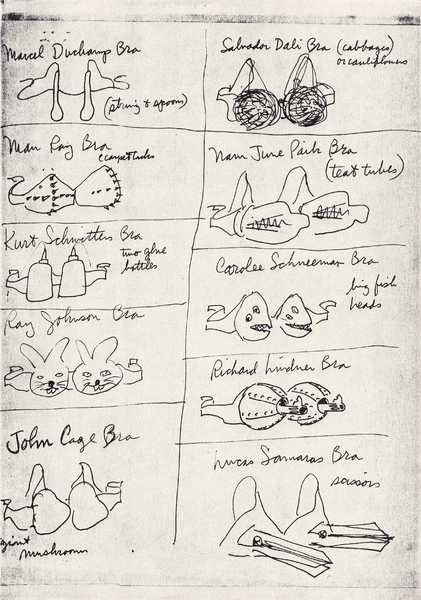 Marcel Duchamp Bra
(string & spoons)
Man Ray Bra
carpet tacks
Kurt Schwitters Bra
two glue
bottles
Ray Johnson Bra
John Cage Bra
giant
mushrooms
Salvador Dali Bra (cabbages)
or cauliflowers
Nam June Paik Bra
(test tubes)
Carolee Schneeman Bra
big fish
heads
Richard Lindner Bra
Lucas Samaras Bra
scissors